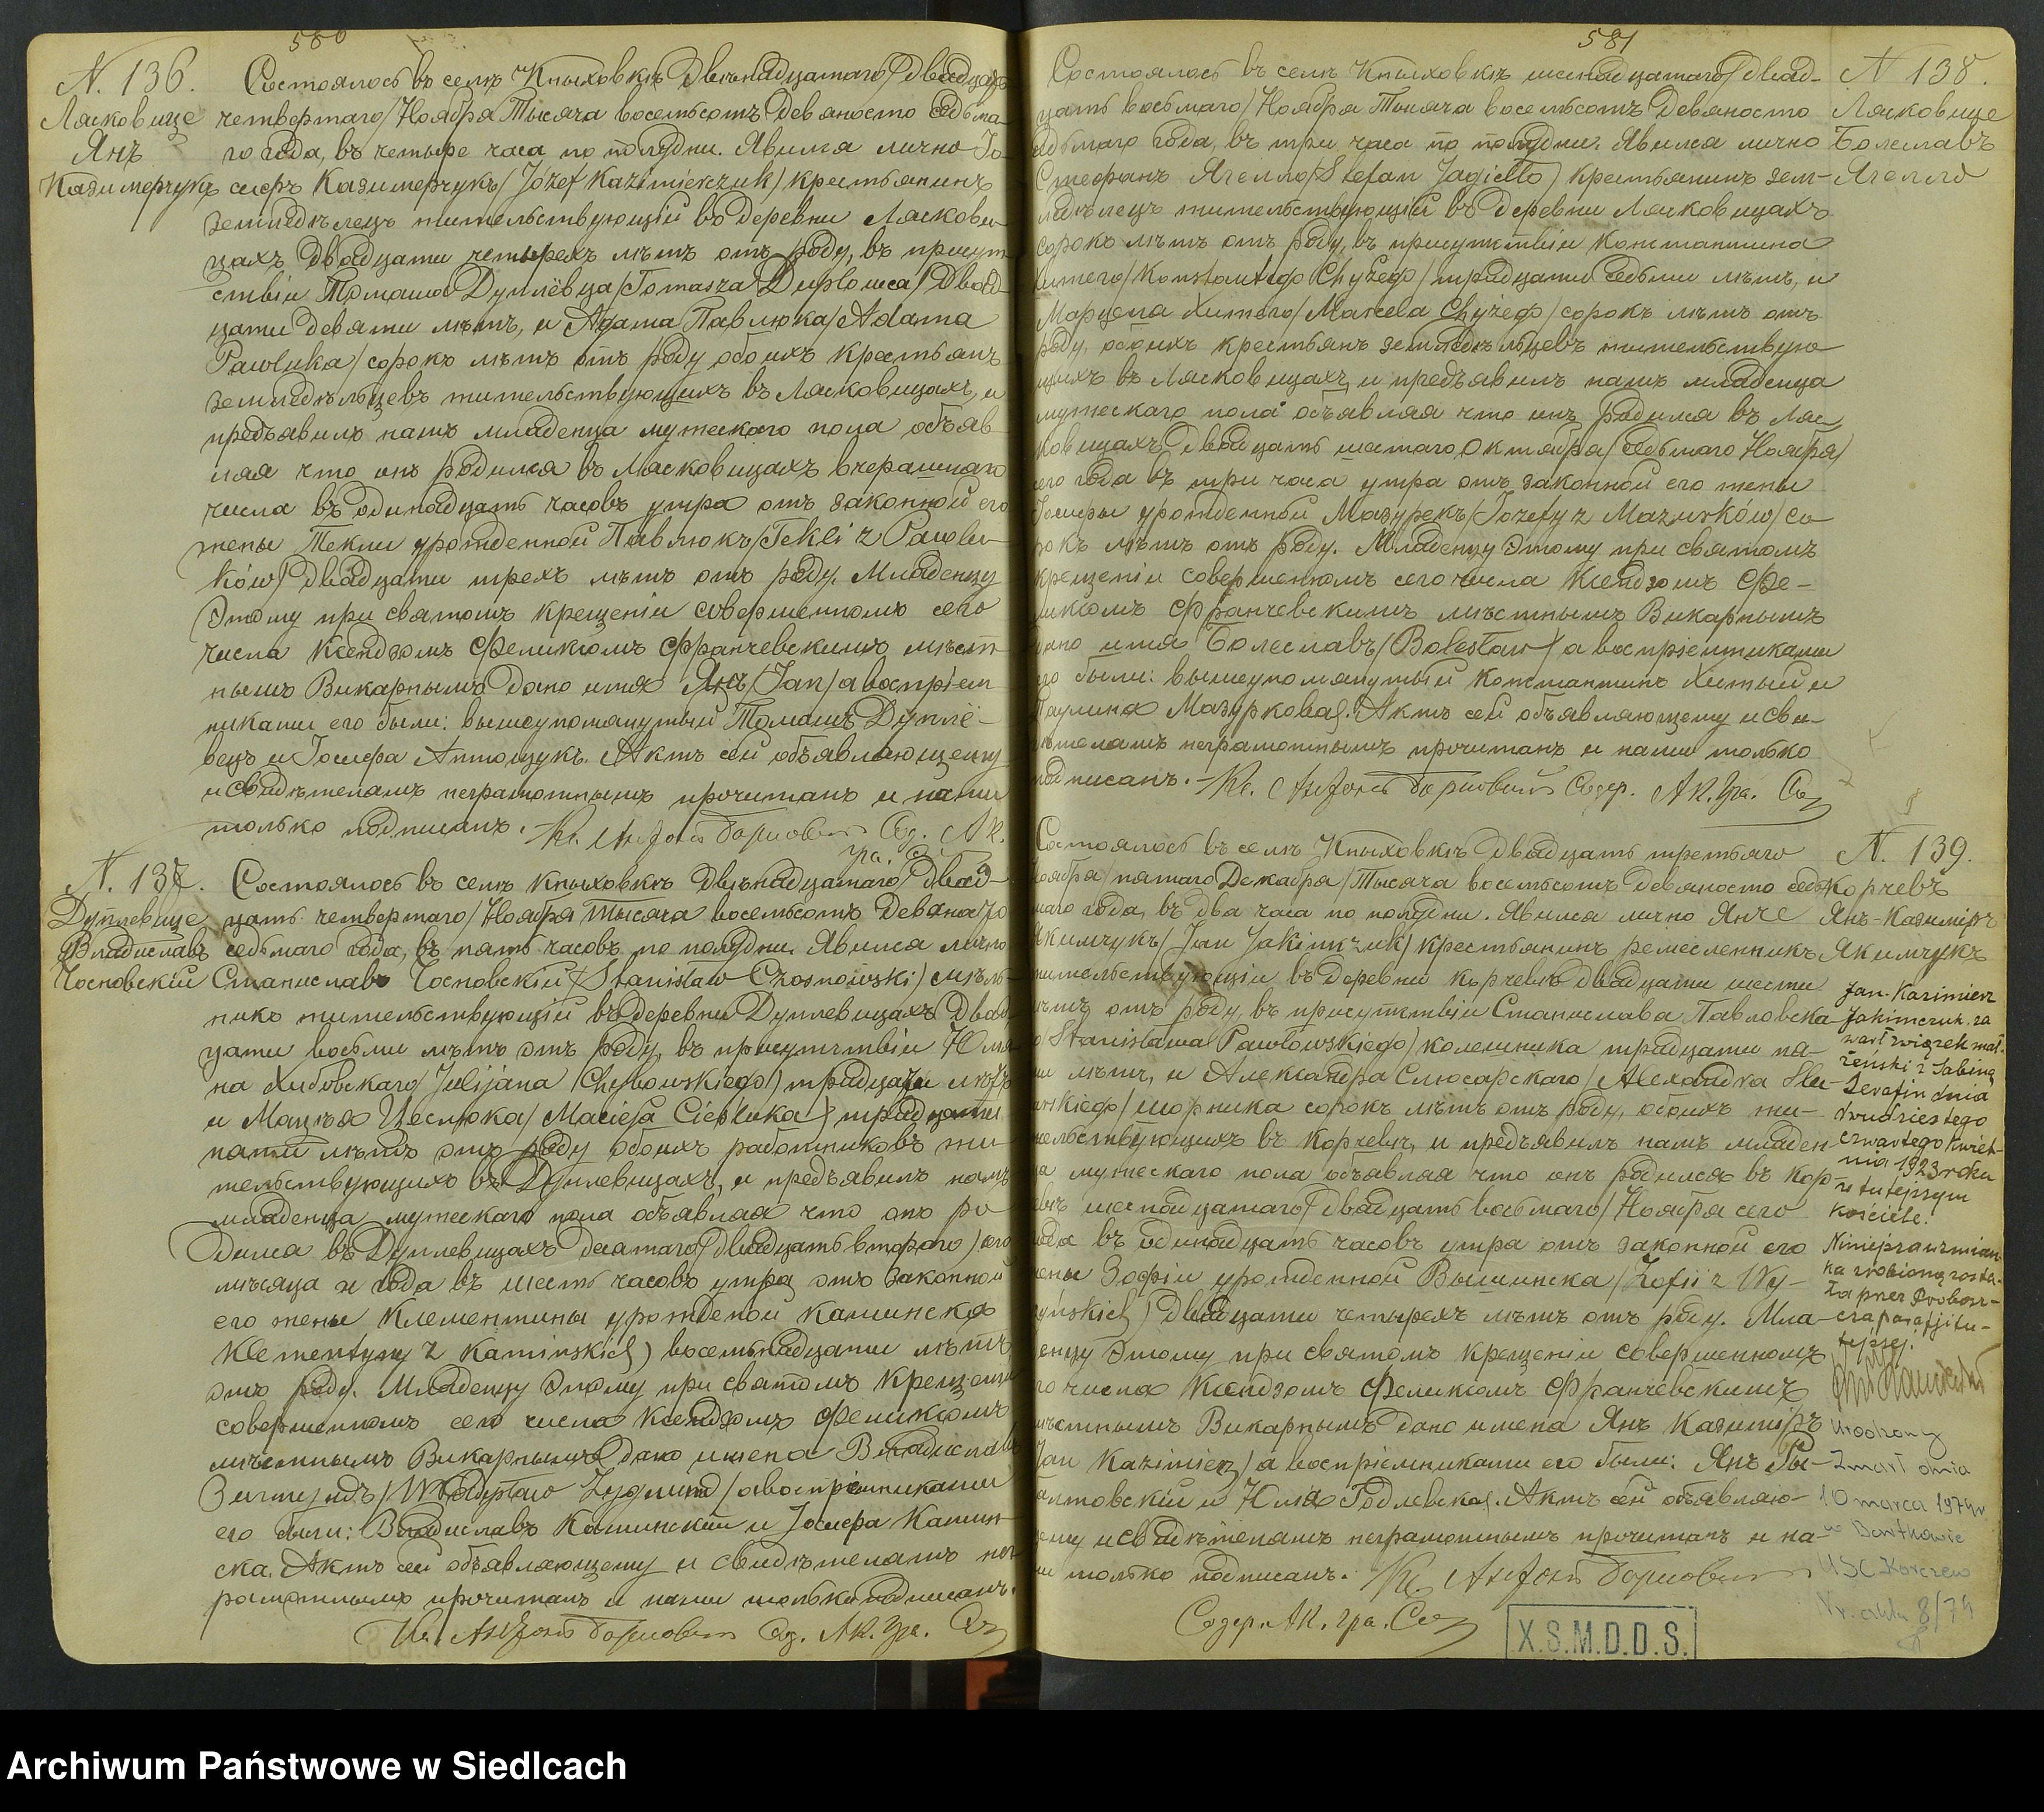 580
N. 136.
Лясковице
Янъ
Казимерчукъ
Состоялось въ селѣ Кныховкѣ двѣнадцатаго/двадцать
четвертаго/Ноября Тысяча восемьсотъ девяносто седьма-
го года, въ четыре часа по полудни. Явился лично Іо-
сифъ Казимерчукъ/Józef Kazimierczuk/крестьянинъ
земледѣлецъ жительствующій въ деревни Ляскови-
цахъ двадцати четырехъ лѣтъ отъ роду, въ присут-
ствіи Томаша Дуплёвца/Tomasza Duplowca/двад-
цати девяти лѣтъ, и Адама Павлюка/Adama
Pawluka/сорокъ лѣтъ отъ роду обоихъ крестьянъ
земледѣльцевъ жительствующихъ въ Лясковицахъ, и
предъявилъ намъ младенца мужескаго пола объяв-
ляя что онъ родился въ Лясковицахъ вчерашняго
числа въ одинадцать часовъ утра отъ законной его
жены Текли урожденной Павлюкъ/Tekli z Pawlu-
ków/двадцати трехъ лѣтъ отъ роду. Младенцу
этому при святомъ крещеніи совершенномъ сего
числа Ксендзомъ Феликсомъ Франчевскимъ мѣст-
нымъ Викарнымъ дано имя Янъ/Jan/а воспріем-
никами его были: вышеупомянутый Томашъ Дуплё-
вецъ и Іосифа Антощукъ. Актъ сей объявляющему
и свидѣтелямъ неграмотнымъ прочитанъ и нами
только подписанъ. Кс. Антоній Сод. Ак.
гра. Со
N. 137.
Дуплевице
Владиславъ
Чосновскій
Состоялось въ селѣ Кныховкѣ двѣнадцатаго/двад-
цать четвертаго/Ноября Тысяча восемьсотъ девяносто
седьмаго года, въ пять часовъ по полудни. Явился лично
Станиславъ Чосновскій/Stanisław Czosnowski/мѣль-
никъ жительствующій въ деревни Дуплевицахъ двад-
цати восьми лѣтъ отъ роду, въ присутствіи Юлія-
на Хибовскаго/Julijana Chybowskiego/тридцати лѣтъ
и Мацѣя Цеслюка/Macieja Cieśluka/тридцати
пяти лѣтъ отъ роду обоихъ работниковъ жи-
тельствующихъ въ Дуплевицахъ, и предъявилъ намъ
младенца мужескаго пола объявляя что онъ ро-
дился въ Дуплевицахъ десятаго/двадцать втораго/сего
мѣсяца и года въ шесть часовъ утра отъ законной
его жены Клементины урожденой Каминска
Klementyny z Kaminskich) восемьнадцати лѣтъ
отъ роду. Младенцу этому при святомъ крещеніи
совершенномъ сего числа Ксендзомъ Феликсомъ
мѣстнымъ Викарнымъ дано имена Владиславъ
Зигмундъ/Władysław Zygmund/а воспріемниками
его были: Владиславъ Каминскій и Іосифа Камин-
ска. Актъ сей объявляющему и свидѣтелямъ нег-
рамотнымъ прочитанъ и нами только подписанъ.
Кс. Антоній Сод. Ак. гра. Со
581
N 138.
Лясковице
Болеславъ
Ягелло
Состоялось въ селѣ Кныховкѣ шеснадцатаго/двад-
цать восьмаго/Ноября Тысяча восемьсотъ девяносто
седьмаго года, въ три часа по полудни. Явился лично
Стефанъ Ягелло/Stefan Jagiełło) крестьянинъ зем-
ледѣлецъ жительствующій въ деревни Лясковицахъ
сорокъ лѣтъ отъ роду, въ присутствіи Константина
Хитего/Konstantego Chyżego/тридцати седьми лѣтъ, и
Марцела Хитего/Marcela Chyżego/сорокъ лѣтъ отъ
роду, обоихъ крестьянъ земледѣльцевъ жительствую-
щихъ въ Лясковицахъ и предъявилъ намъ младенца
мужескаго пола объявляя что онъ родился въ Ляс-
ковицахъ двадцать шестаго Октября/седьмаго Ноября/
сего года въ три часа утра отъ законной его жены
Іосифы урожденной Мазурекъ/Józefy z Mazurków/со-
рокъ лѣтъ отъ роду. Младенцу этому при святомъ
крещеніи совершенномъ сего числа Ксендзомъ Фе-
ликсомъ Франчевскимъ мѣстнымъ Викарнымъ
дано имя Болеславъ/Bolesław/а воспріемниками
его были: вышеупомянутый Константинъ Хитый и
Паулина Мазуркова. Актъ сей объявляющему и сви-
дѣтелямъ неграмотнымъ прочитанъ и нами только
подписанъ. Кс. Антоній Содер. Ак. Гра. Со
N. 139.
Корчевъ
Янъ-Казимиръ
Якимчукъ
Состоялось въ селѣ Кныховкѣ двадцать третьяго
Ноября/пятаго Декабря/Тысяча восемьсотъ девяносто седь-
маго года, въ два часа по полудни. Явился лично Янъ
Якимчукъ/Jan Jakimczuk/крестьянинъ ремесленникъ
жительствующій въ деревни Корчевѣ двадцати шести
лѣтъ отъ роду, въ присутствіи Станислава Павловска-
го Stanisława Pawłowskiego/колешника тридцати пя-
ти лѣтъ, и Александра Слюсарскаго/Alexandra Slu-
sarskiego/шорника сорокъ лѣтъ отъ роду, обоихъ жи-
тельствующихъ въ Корчевѣ, и предъявилъ намъ младен-
ца мужескаго пола объявляя что онъ родился въ Кор-
чевѣ шеснадцатаго/двадцать восьмаго/Ноября сего
года въ одинадцать часовъ утра отъ законной его
жены Зофіи урожденной Вышинска/Zofii z Wy-
szyńskich) двадцати четырехъ лѣтъ отъ роду. Мла-
денцу этому при святомъ крещеніи совершенномъ
сего числа Ксендзомъ Феликсомъ Франчевскимъ
мѣстнымъ Викарнымъ дано имена Янъ Казимиръ
Jan Kazimierz/а воспріемниками его были: Янъ Ры-
и Юлія Годлевска. Актъ сей объявляю-
щему и свидѣтелямъ неграмотнымъ прочитанъ и на-
ми только подписанъ. Кс. Антоній
Содер. Ак. гра. Со
Jan-Kazimierz
Jakimczuk za
warł związek mał-
żeński z Sabiną
Serafin dnia
dwudziestego
czwartego kwiet-
nia 1923 roku
w tutejszym
kościele.
Niniejsza wzmian-
ka zrobioną zosta-
ła przez Probosz-
cza parafji tu-
tejszej.
Urodzony
Zmarł dnia
10 marca 1974 r
w Bartkowie
USC Korczew
Nr. aktu 8/74
X.S.M.D.D.S.
Archiwum Państwowe w Siedlcach